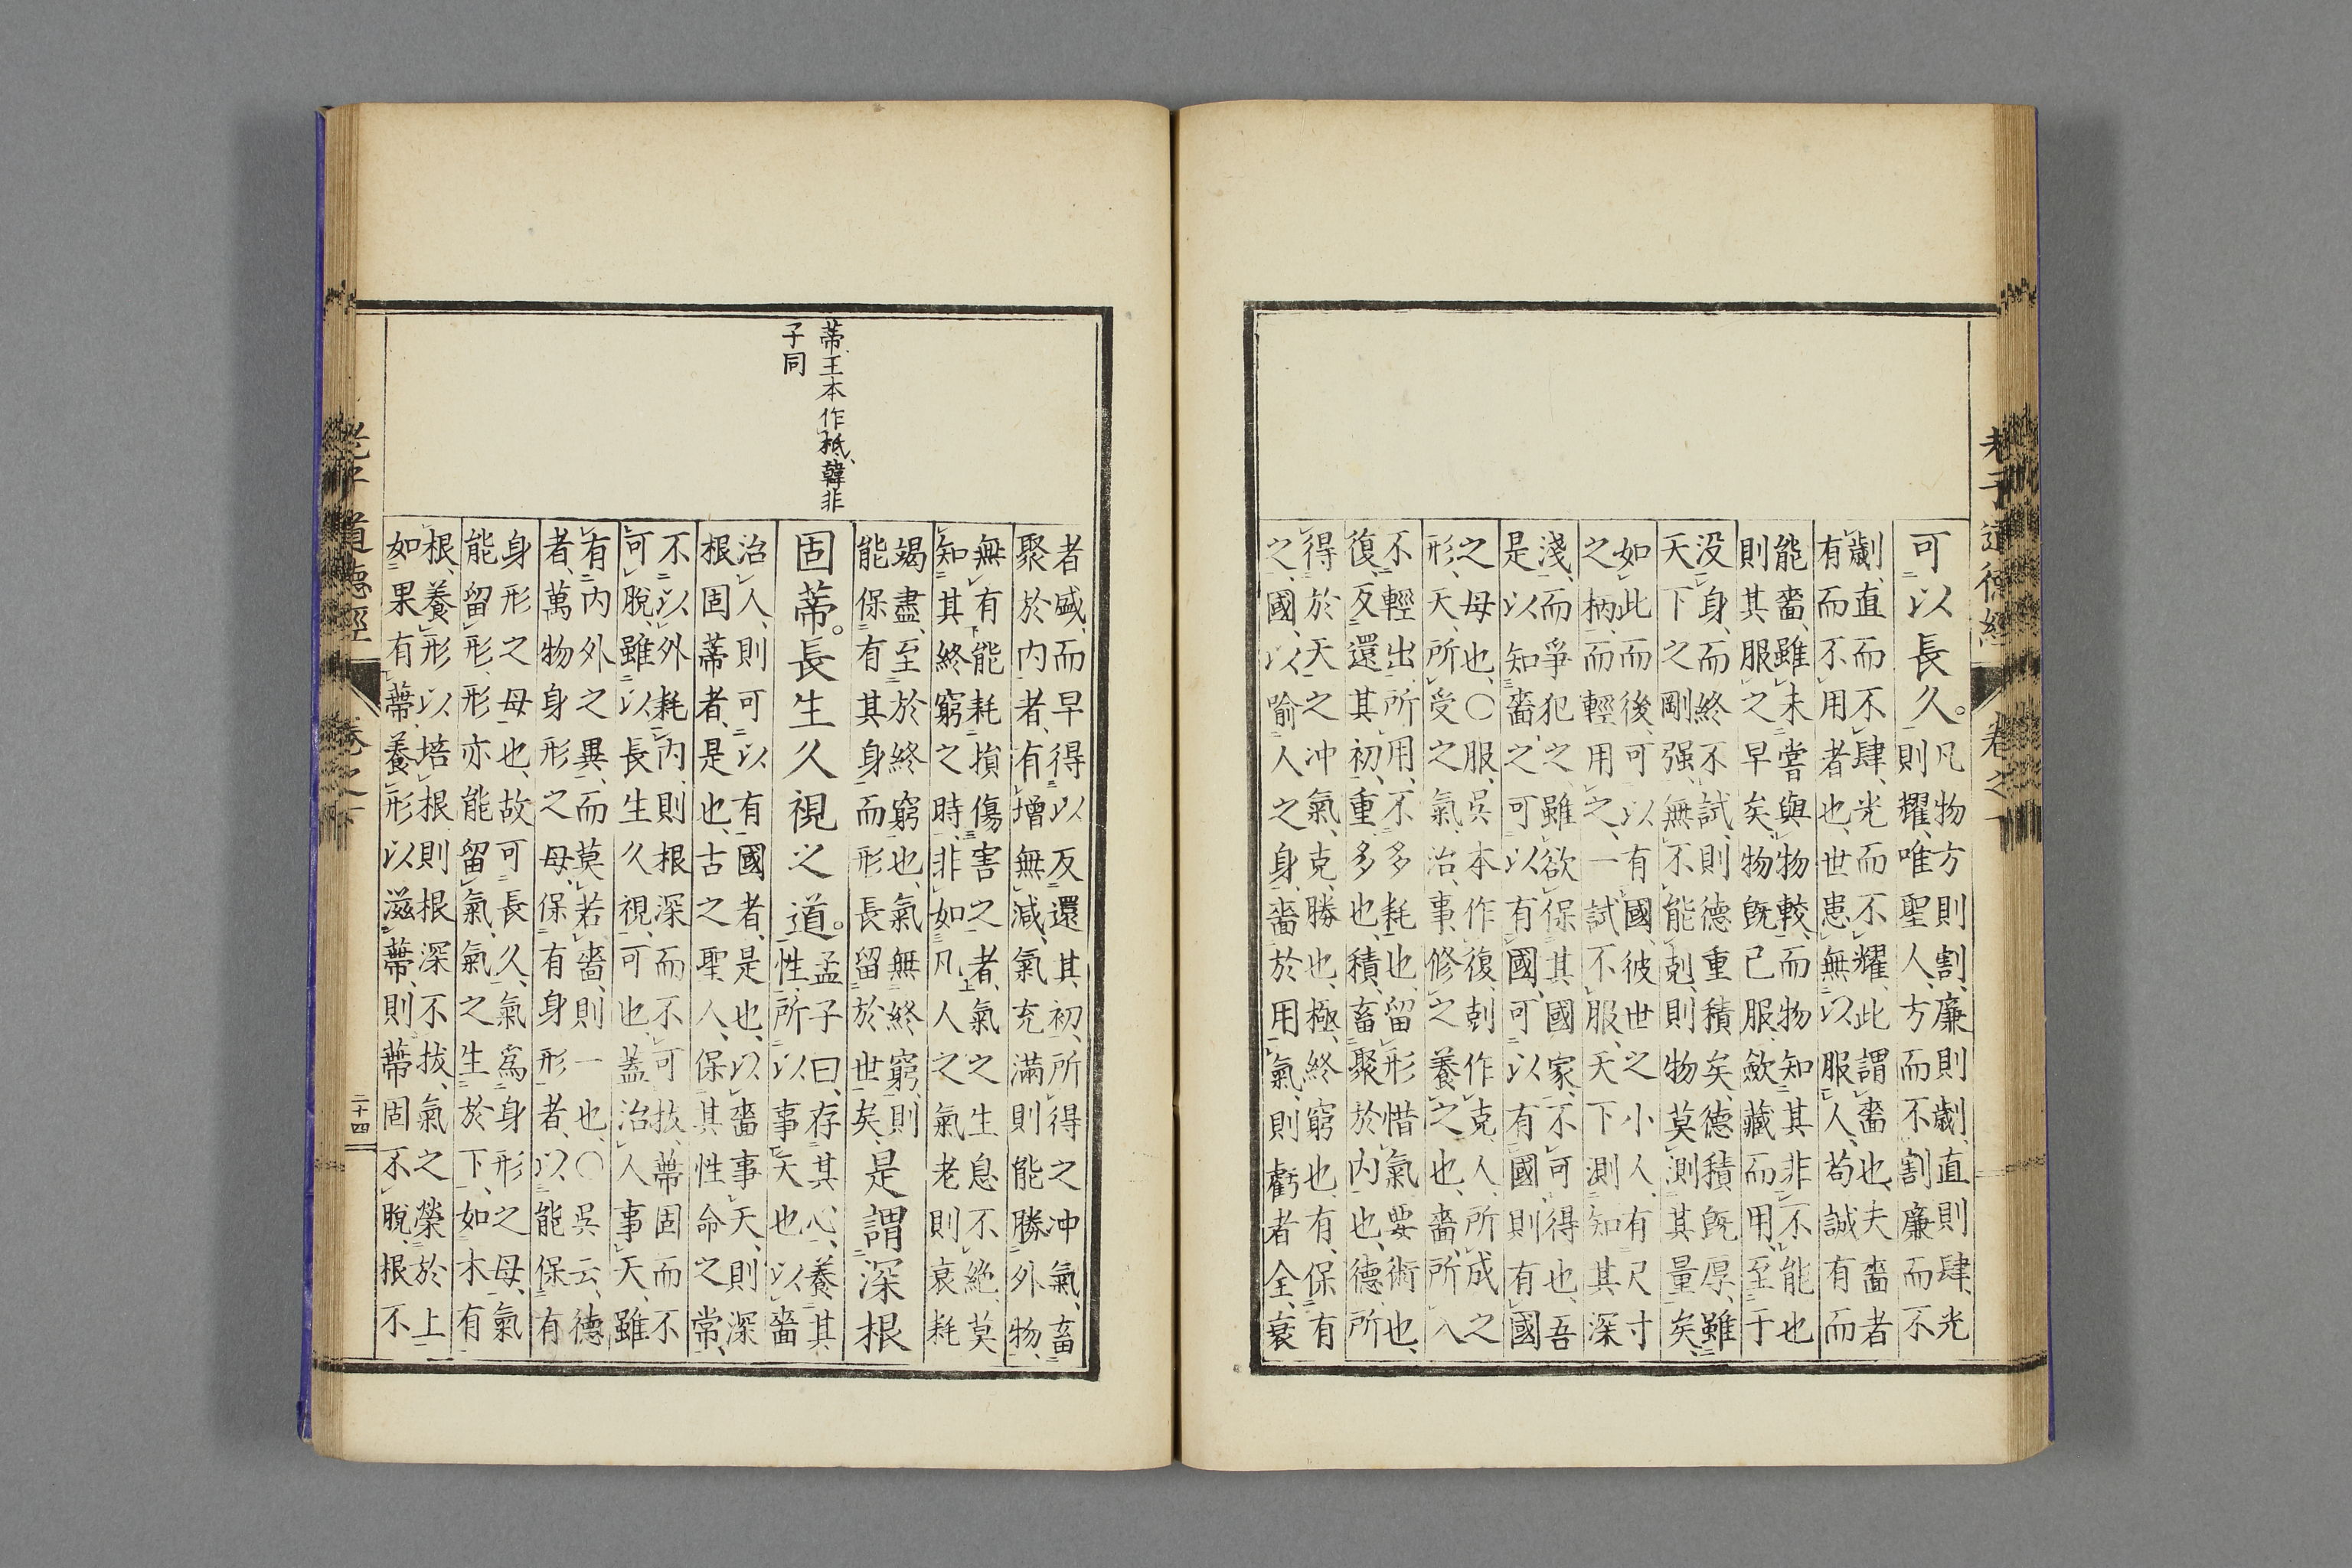 老子道德經 卷之下
可以長久。
凡物方則割、廉則劌、直則肆、光
則耀、唯聖人、方而不割廉而不
劌、直而不肆、光而不耀、此謂嗇也、夫嗇者
有而不用者也、世患無以服人、苟誠有而
能嗇、雖未嘗與物較、而物知其非不能也
則其服之早矣、物旣已服、斂藏而用、至于
没身、而終不試、則德重積矣、德積旣厚、雖
天下之剛强、無不能剋、則物莫測其量矣、
如此而後、可以有國、彼世之小人、有尺寸
之柄、而輕用之、一試不服、天下測知其深
淺、而爭犯之、雖欲保其國家、不可得也、吾
是以知嗇之可以有國、可以有國則有國
之母也、〇服、吳本作復、剋作克、人所成之
形、天所受之氣、治事、修之養之也、嗇所入
不輕出、所用、不多耗也、留形惜氣要術也、
復、反還其初、重、多也、積、畜聚於内也、德、所
得於天之冲氣、克、勝也、極、終窮也、有、保有
之、國、以喻人之身、嗇於用氣、則虧者全、衰
蒂、王本作柢、韓非
子同
者盛、而早得以反還其初、所得之冲氣、畜
聚於内者、有增無減、氣充滿則能勝外物、
無有能耗損傷害之者、氣之生息不絶、莫
知其終窮之時、非如凡人之氣老則衰耗
竭盡、至於終窮也、氣無終窮、則
能保有其身而形長留於世矣、
是謂深根
固蒂。長生久視之道。
孟子曰、存其心、養其
性、所以事天也、以嗇
治人、則可以有國者、是也、以嗇事天、則深
根固蒂者、是也、古之聖人、保其性命之常、
不以外耗内、則根深而不可拔、蒂固而不
可脫、雖以長生久視、可也、蓋治人事天、雖
有内外之異、而莫若嗇、則一也、〇吳云、德
者、萬物身形之母、保有身形者、以能保有
身形之母也、故可長久、氣爲身形之母、氣
能留形、形亦能留氣、氣之生於下、如木有
根、養形以培根則根深不拔、氣之榮於上
如果有蒂、養形以滋蒂、則蒂固不脫、根不
老子道德經 卷之下 二十四